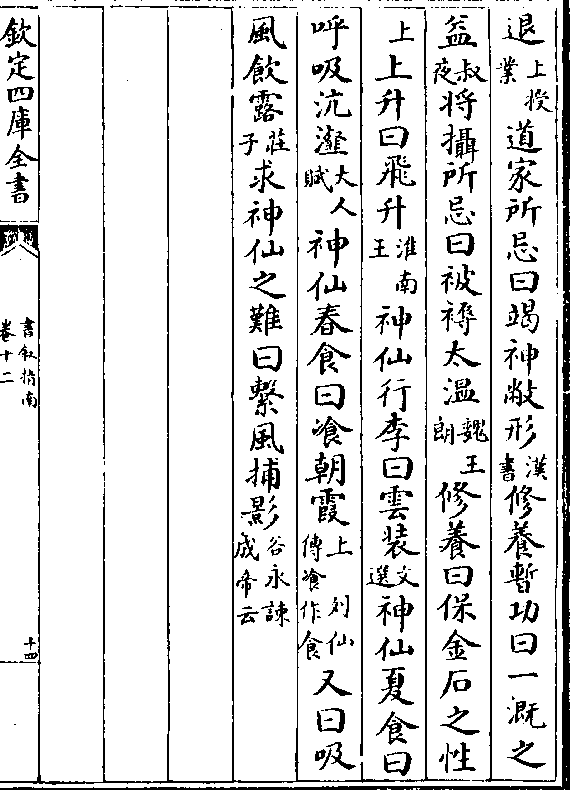 退上掞業道家所忌曰竭神敝形漢書修養暫功曰一溉之
益叔夜將攝所忌曰被褥太溫魏王朗修養曰保金石之性
上上升曰飛升淮南王神仙行李曰雲裝文選神仙夏食曰
呼吸沆瀣大人賦神仙春食曰飡朝霞上列仙傳飡作食又曰吸
風飲露莊子求神仙之難曰繫風捕影谷永諫成帝云
欽定四庫全書
書敘指南
卷十二
十四